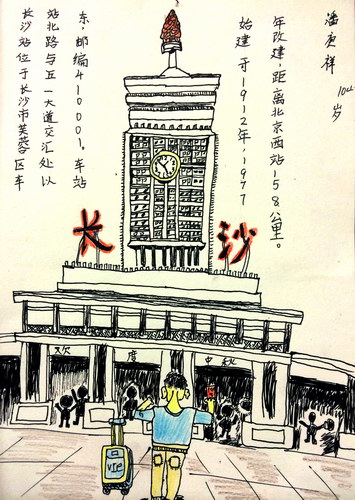 长沙站位于长沙市芙蓉区车
站北路与五一大道交汇处以
东,邮编410001。车站
始建于1912年,1977
年改建,距离北京西站158公里。
潘庚祥
10岁
长沙
欢度中秋
VIP